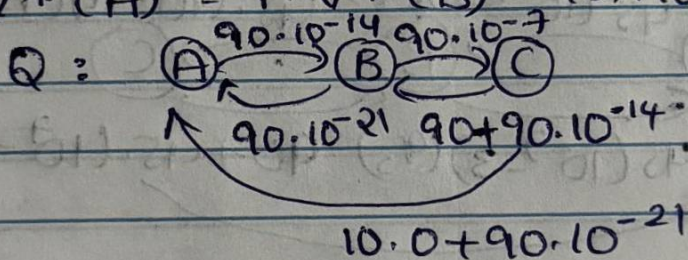 90.10⁻¹⁴ 90.10⁻⁷
Q : A B C
90.10⁻²¹ 90+90.10⁻¹⁴
10.0+90.10⁻²¹